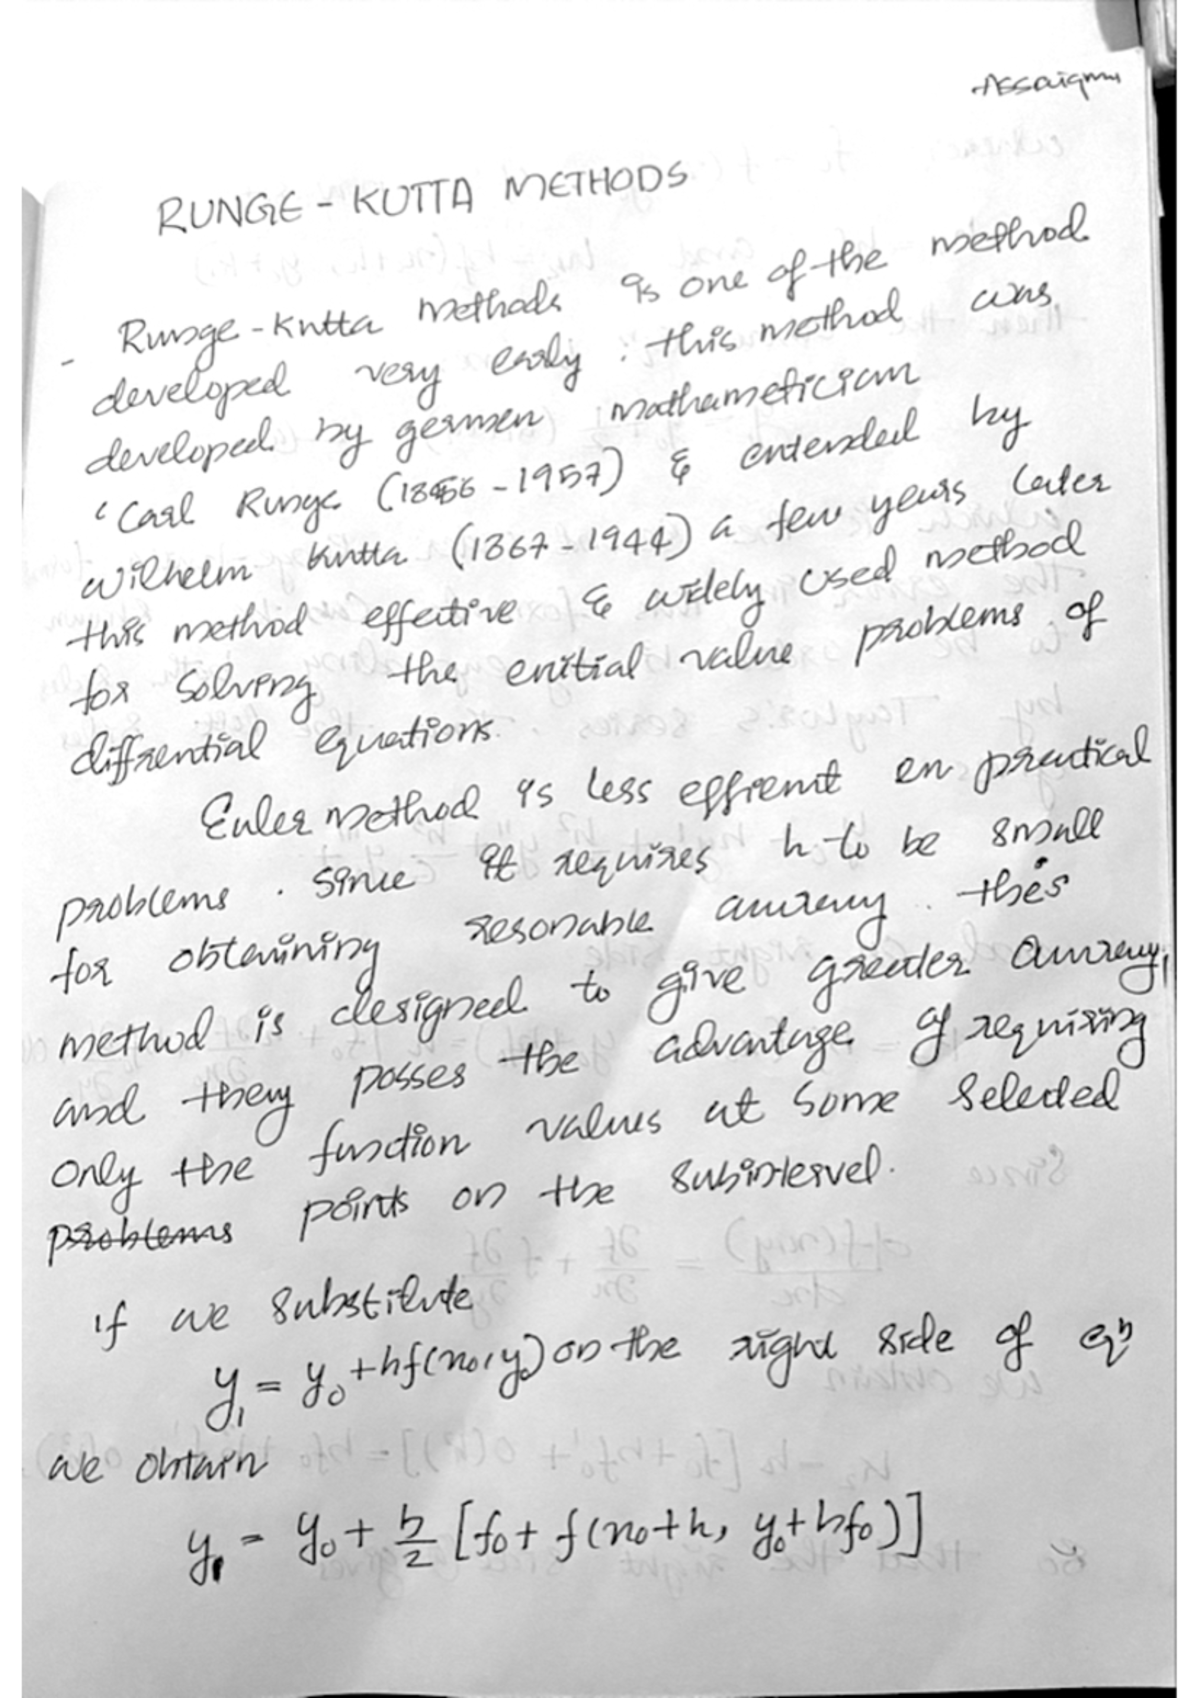 RUNGE - KUTTA METHODS
- Runge - Kutta methods is one of the method
developed very early . this method was
developed by germen mathameticiam
' Carl Runge (1856 - 1957) & entended by
wilhelm kutta (1867 - 1944) a few years later
this method effective & widely used method
for solving the enitial value problems of
diffrential equations.
Euler method is less effienit en practical
problems . Since it requires h to be small
for obtaining resonable accuracy . this
method is designed to give greater accuracy,
and they posses the advantage of requiring
only the function values at some selected
problems points on the subintervel.
if we substitute
y₁ = y₀ + hf(x₀, y₀) on the right side of eqⁿ
we obtain
y₁ = y₀ + h/2 [f₀ + f(x₀+h, y₀+hf₀)]